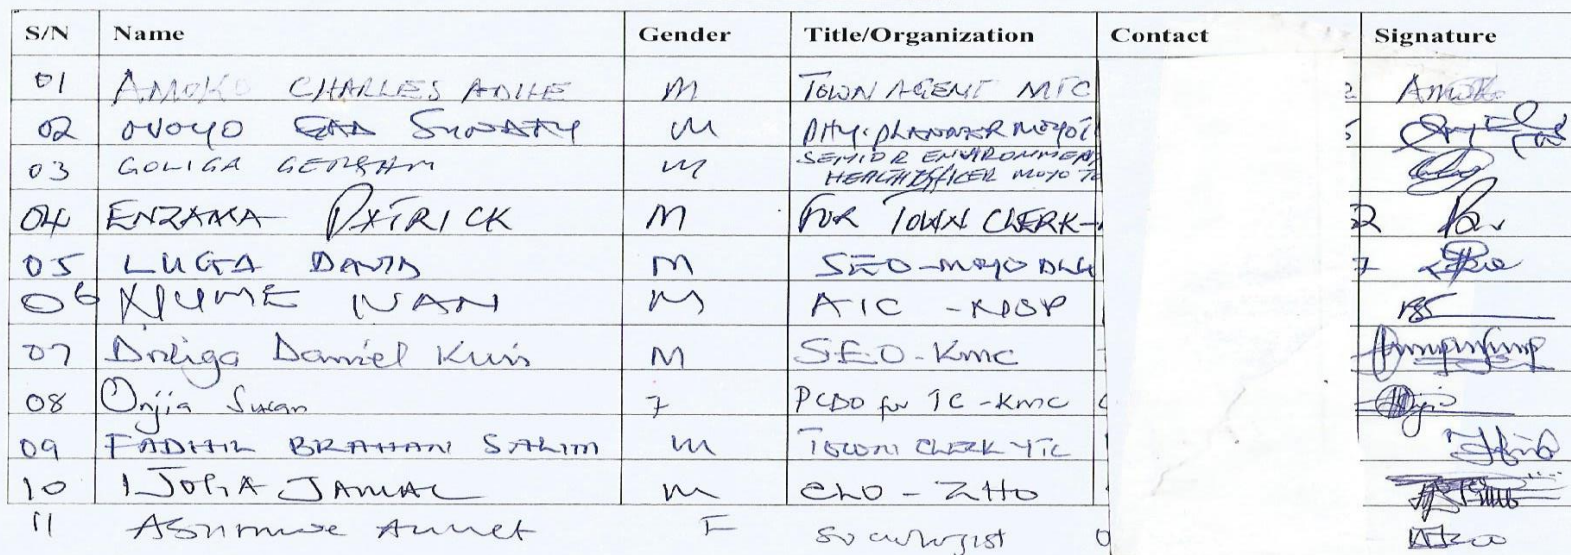 S/N Name Gender Title/Organization Contact Signature
01 AMOKO CHARLES ADILE M TOWN AGENT MTC 2 Amoko
02 OVOYO GAD SUNDAY M PHY. PLANNER MOYO T 5
03 GOLIGA GERSHAM M SENIOR ENVIRONMEN
HEALTH OFFICER MOYO TC
04 ENZAMA PATRICK M FOR TOWN CLERK- 2
05 LUGA DAVID M SEO-MOYO DLG 7
06 IVAN M AIC -NDSP
07 Daniel M SEO-KMC
08 Onjia Susan F PCDO for TC -KMC
09 FADHIL BRAHAN SALIM M TOWN CLERK YTC
10 IJOGA JAMAL M CLO - ZHO
11 Annet F Sociologist 0